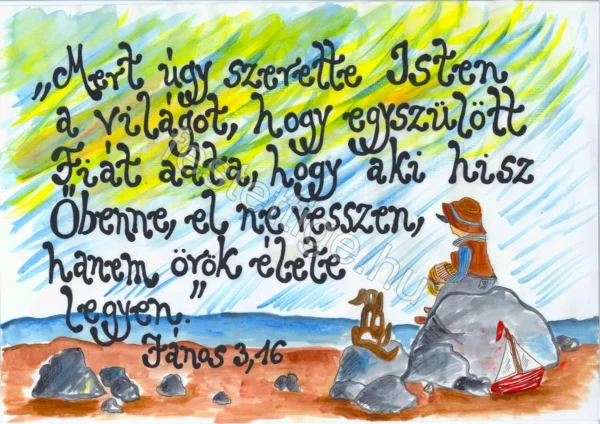 „Mert úgy szerette Isten
a világot, hogy egyszülött
Fiát adta, hogy aki hisz
Őbenne, el ne vesszen,
hanem örök élete
legyen.”
János 3,16